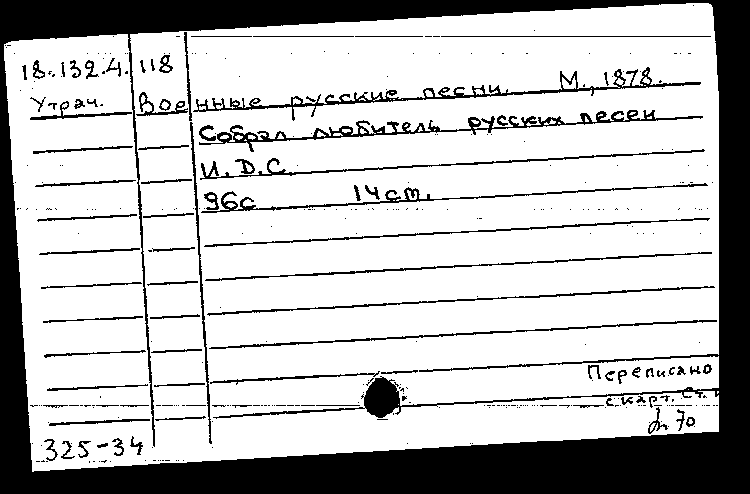 18.132.4. 118
Утрач. Военные русские песни. М., 1878.
Собрал любитель русских песен
И. Д. С.
96с 14 cm.
Переписано
с карт. Ст.
325-34 70